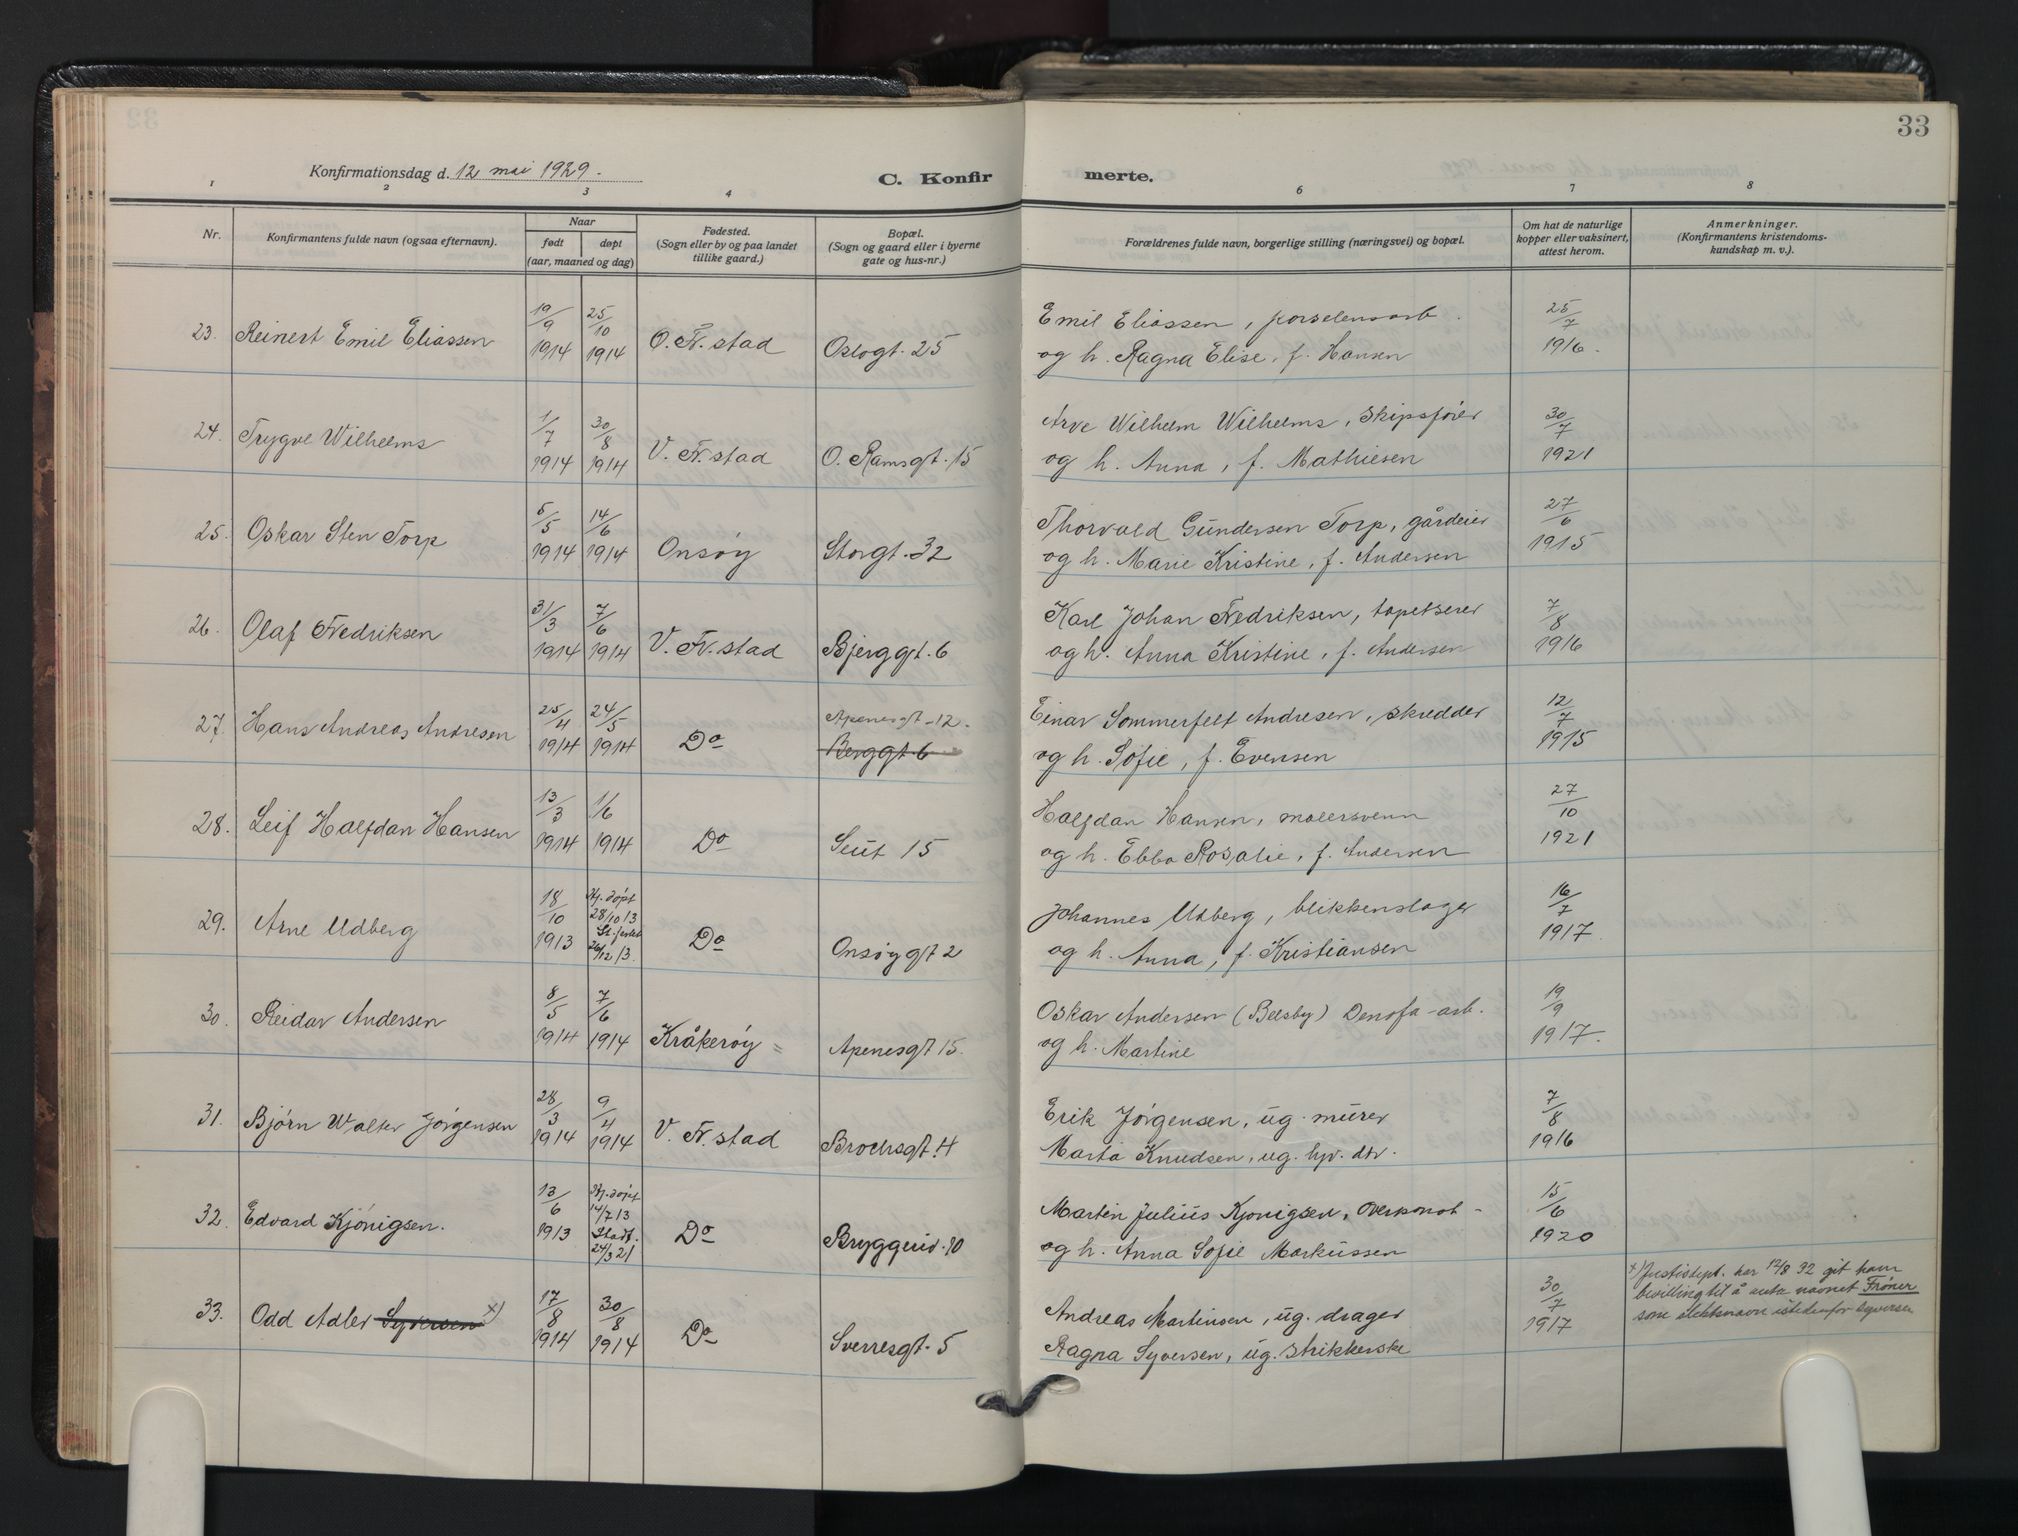 33
Konfirmationsdag d. 12 mai 1929.
C. Konfirmerte.
1 2 3 4 6 7 8
Nr.
Konfirmantens fulde navn (ogsaa efternavn).
Naar
født døpt
(aar, maaned og dag)
Fødested.
(Sogn eller by og paa landet
tillike gaard.)
Bopæl.
(Sogn og gaard eller i byerne
gate og hus-nr.)
Forældrenes fulde navn, borgerlige stilling (næringsvei) og bopæl.
Om hat de naturlige
kopper eller vaksinert,
attest herom.
Anmerkninger.
(Konfirmantens kristendoms-
kundskap m. v.).
23. Reinert Emil Eliassen 19/9 1914 25/10 1914 O. Fr. stad Oslogt. 25
Emil Eliassen, porselensarb.
og h. Ragna Elise, f. Hansen
25/7 1916.
24. Trygve Wilhelms 1/7 1914 30/8 1914 V. Fr. stad O. Ramsgt. 15
Arve Wilhelm Wilhelms, skipsfører
og h. Anna, f. Mathiesen
30/7 1921
25. Oskar Sten Torp 5/5 1914 14/6 1914 Onsøy Storgt. 32
Thorvald Gundersen Torp, gårdeier
og h. Marie Kristine, f. Andersen
27/6 1915
26. Olaf Fredriksen 31/3 1914 7/6 1914 V. Fr. stad Bjerggt. 6
Karl Johan Fredriksen, tapetserer
og h. Anna Kristine, f. Andersen
7/8 1916
27. Hans Andreas Andresen 25/4 1914 24/5 1914 Do Apenesgt. 12.
Berggt. 6
Einar Sommerfelt Andresen, skredder
og h. Sofie, f. Evensen
12/7 1915
28. Leif Halfdan Hansen 13/3 1914 1/6 1914 Do Seut 15
Halfdan Hansen, malersvenn
og h. Ebba Rosalie, f. Andersen
27/10 1921
29. Arne Udberg 18/10 1913 Hj. døpt
28/10 13
26/12 13. Do Onsøygt 2
Johannes Udberg, blikkenslager
og h. Anna, f. Kristiansen
16/7 1917.
30. Reidar Andersen 8/5 1914 7/6 1914 Kråkerøy Apenesgt 15.
Oskar Andersen (Belsby) Denofa-arb.
og h. Martine
19/9 1917.
31. Bjørn Walter Jørgensen 28/3 1914 9/4 1914 V. Fr. stad Brochsgt. 4
Erik Jørgensen, ug. murer
Marta Knudsen, ug. hjv. dtr.
7/8 1916
32. Edvard Kjønigsen. 13/6 1913 Hj. døpt
14/7 13
Stadf.
24/3 21 Do Bryggerid. 10
Martin Julius Kjønigsen,
og h. Anna Sofie Markussen
15/6 1920
33. Odd Adler Syversen x) 17/8 1914 30/8 1914 Do Sverresgt. 5
Andreas Martinsen, ug. drager
Ragna Syversen, ug. strikkerske
30/7 1917
x) Justisdept. har 12/8 32 git ham
bevilling til å anta navnet Frøner
som slektsnavn istedenfor Syversen